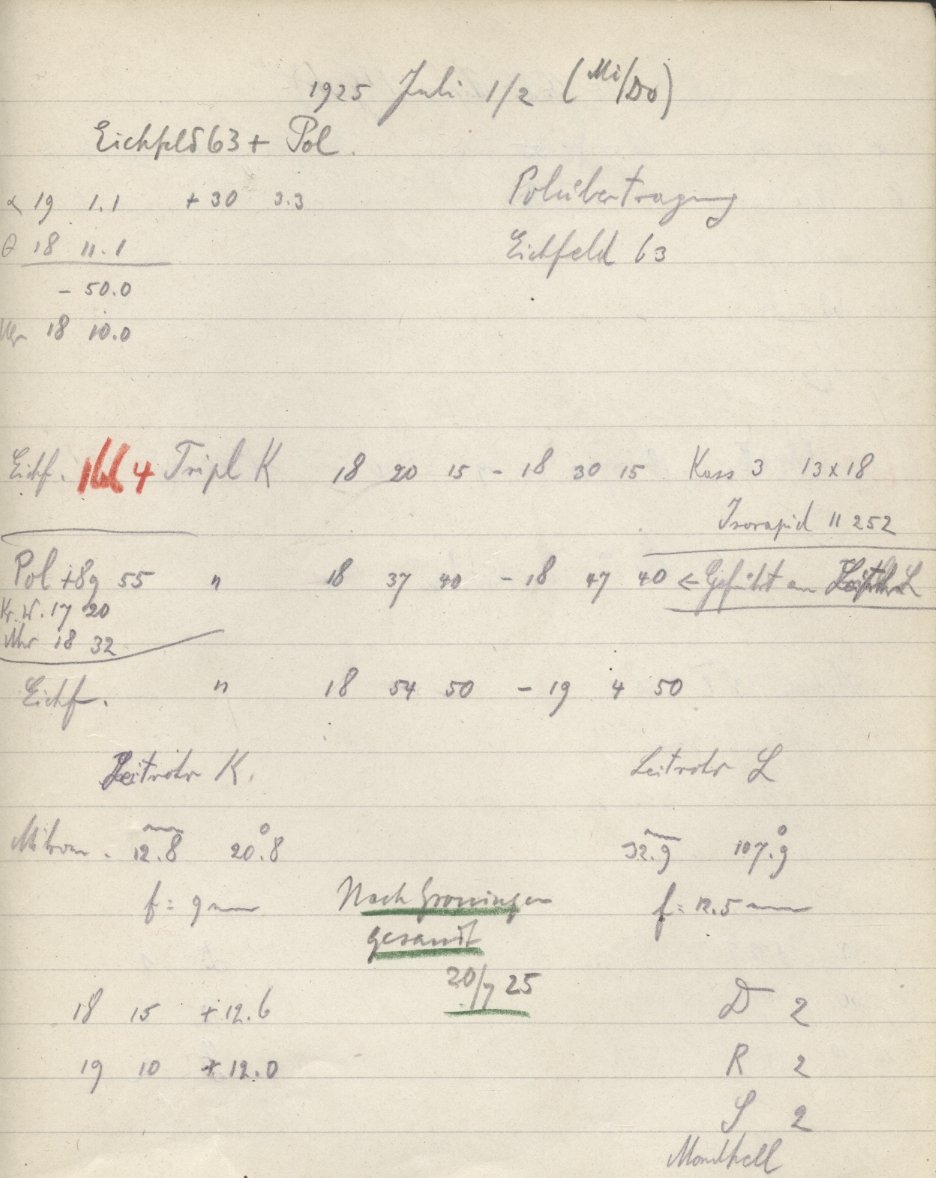 1925 Juli 1/2 (Mi/Do)
Eichfeld 63 + Pol.
α 19 1.1 + 30 3.3
Polübertragung
θ 18 11.1
Eichfeld 63
- 50.0
Uhr 18 10.0
Eichf. 4 Tripl K 18 20 15 - 18 30 15 Kass 3 13x18
Isorapid 11252
Pol +89 55 " 18 37 40 - 18 47 40 ← Geführt an L
Kr. W. 17 20
Uhr 18 32
Eichf. " 18 54 50 - 19 4 50
Leitrohr K. Leitrohr L
Mikrom. 12.8 mm 20.8° 32.9 mm 107.9°
f = 9 mm f = 12.5 mm
Nach Groningen
gesandt
20/7 25
18 15 + 12.6 D 2
19 10 + 12.0 R 2
S 2
Mondhell